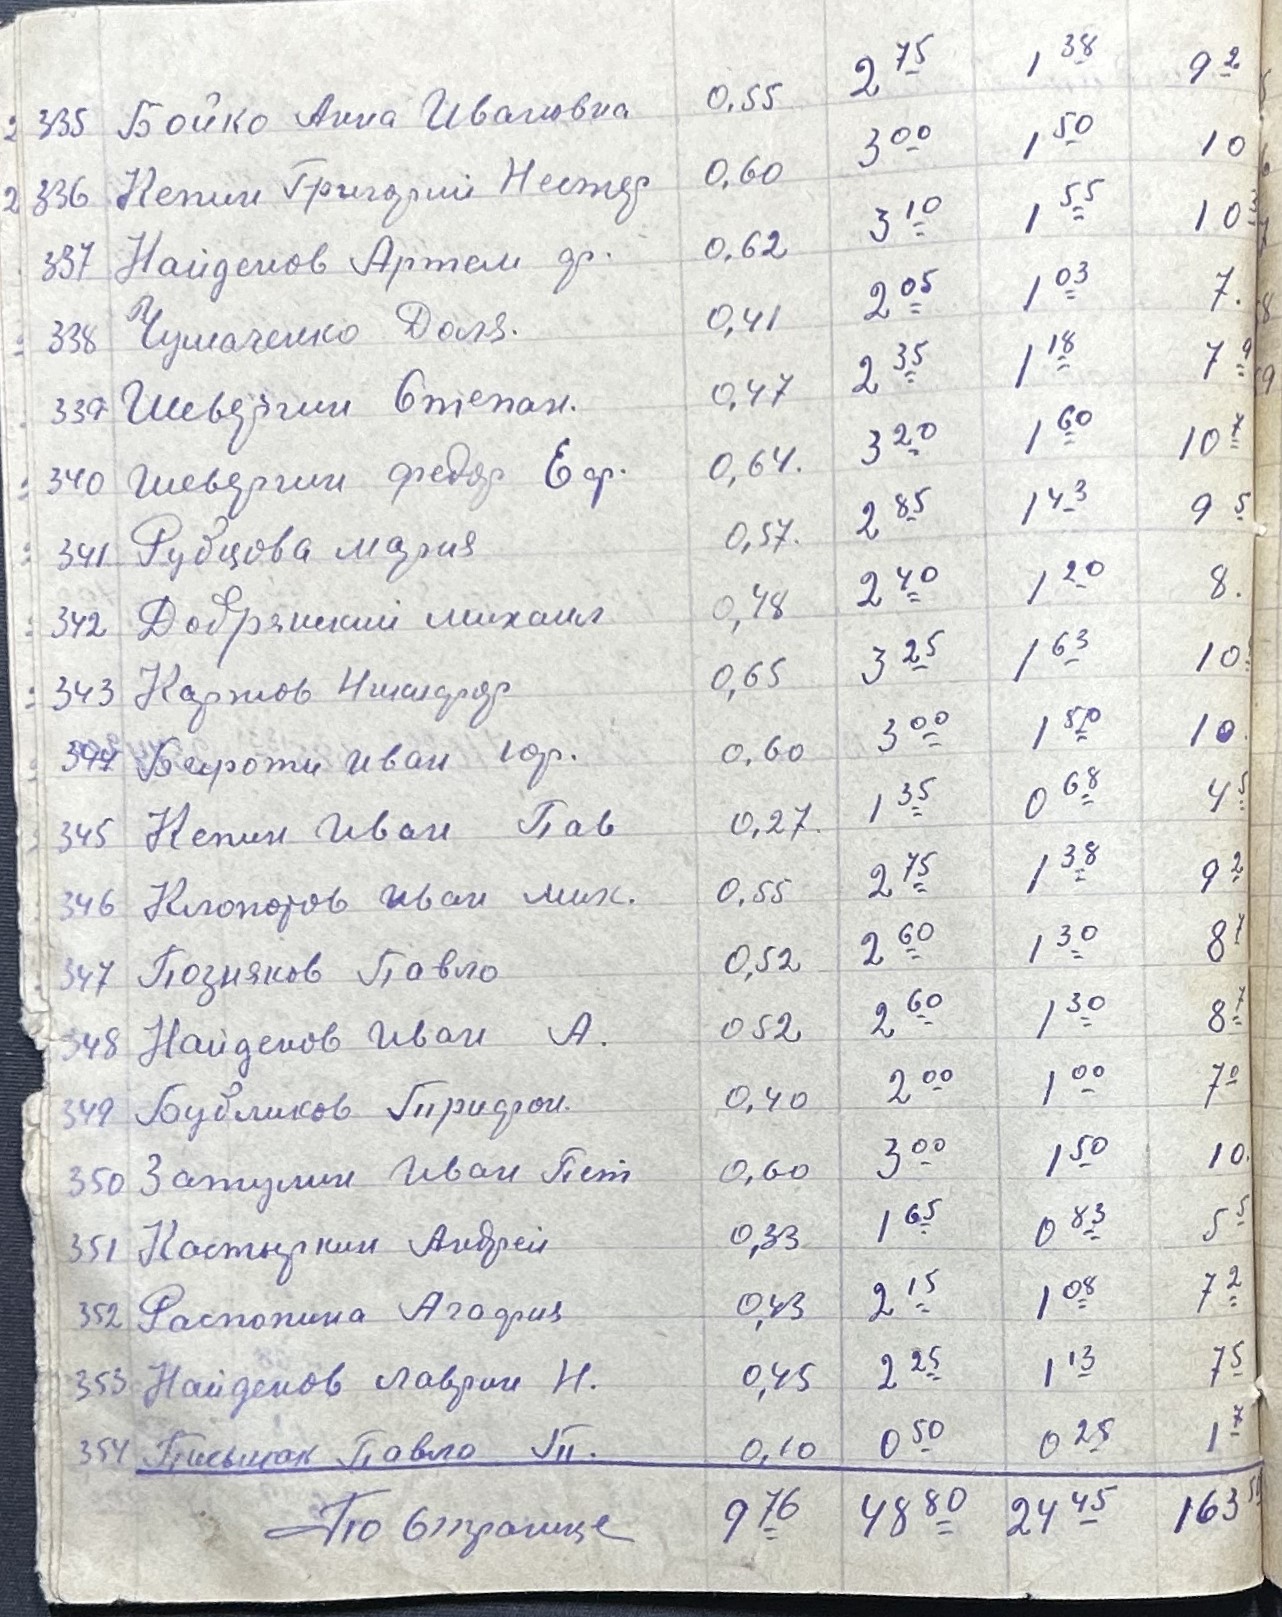 335 Бойко Анна Ивановна 0,55 2 75 1 38 9 2
336 Кепин Григорий Нестер 0,60 3 00 1 50 10
337 Найденов Артем 0,62 3 10 1 55 10
338 Чумаченко Доля. 0,41 2 05 1 03 7.
339 Шевергин Степан. 0,47 2 35 1 18 7 9
340 Шевергин Федор Еф. 0,64. 3 20 1 60 10 7
341 Рубцова Мария 0,57. 2 85 1 43 9 5
342 Добрянский Михаил 0,48 2 40 1 20 8.
343 Карпов Никифор 0,65 3 25 1 63 10
344 Иван 0,60 3 00 1 50 10.
345 Кепин Иван Пав 0,27. 1 35 0 68 4 5
346 Клопотов Иван Мих. 0,55 2 75 1 38 9 2
347 Позняков Павло 0,52 2 60 1 30 8 7
348 Найденов Иван А. 0 52 2 60 1 30 8 7
349 Бубликов Трифон. 0,40 2 00 1 00 7 0
350 Затулин Иван Пет 0,60 3 00 1 50 10.
351 Костыркин Андрей 0,33 1 65 0 83 5 5
352 Распопина Агафия 0,43 2 15 1 08 7 2
353 Найденов Лаврин Н. 0,45 2 25 1 13 7 5
354 Письмак Павло П. 0,10 0 50 0 25 1 7
По странице 9 76 48 80 24 45 163 50